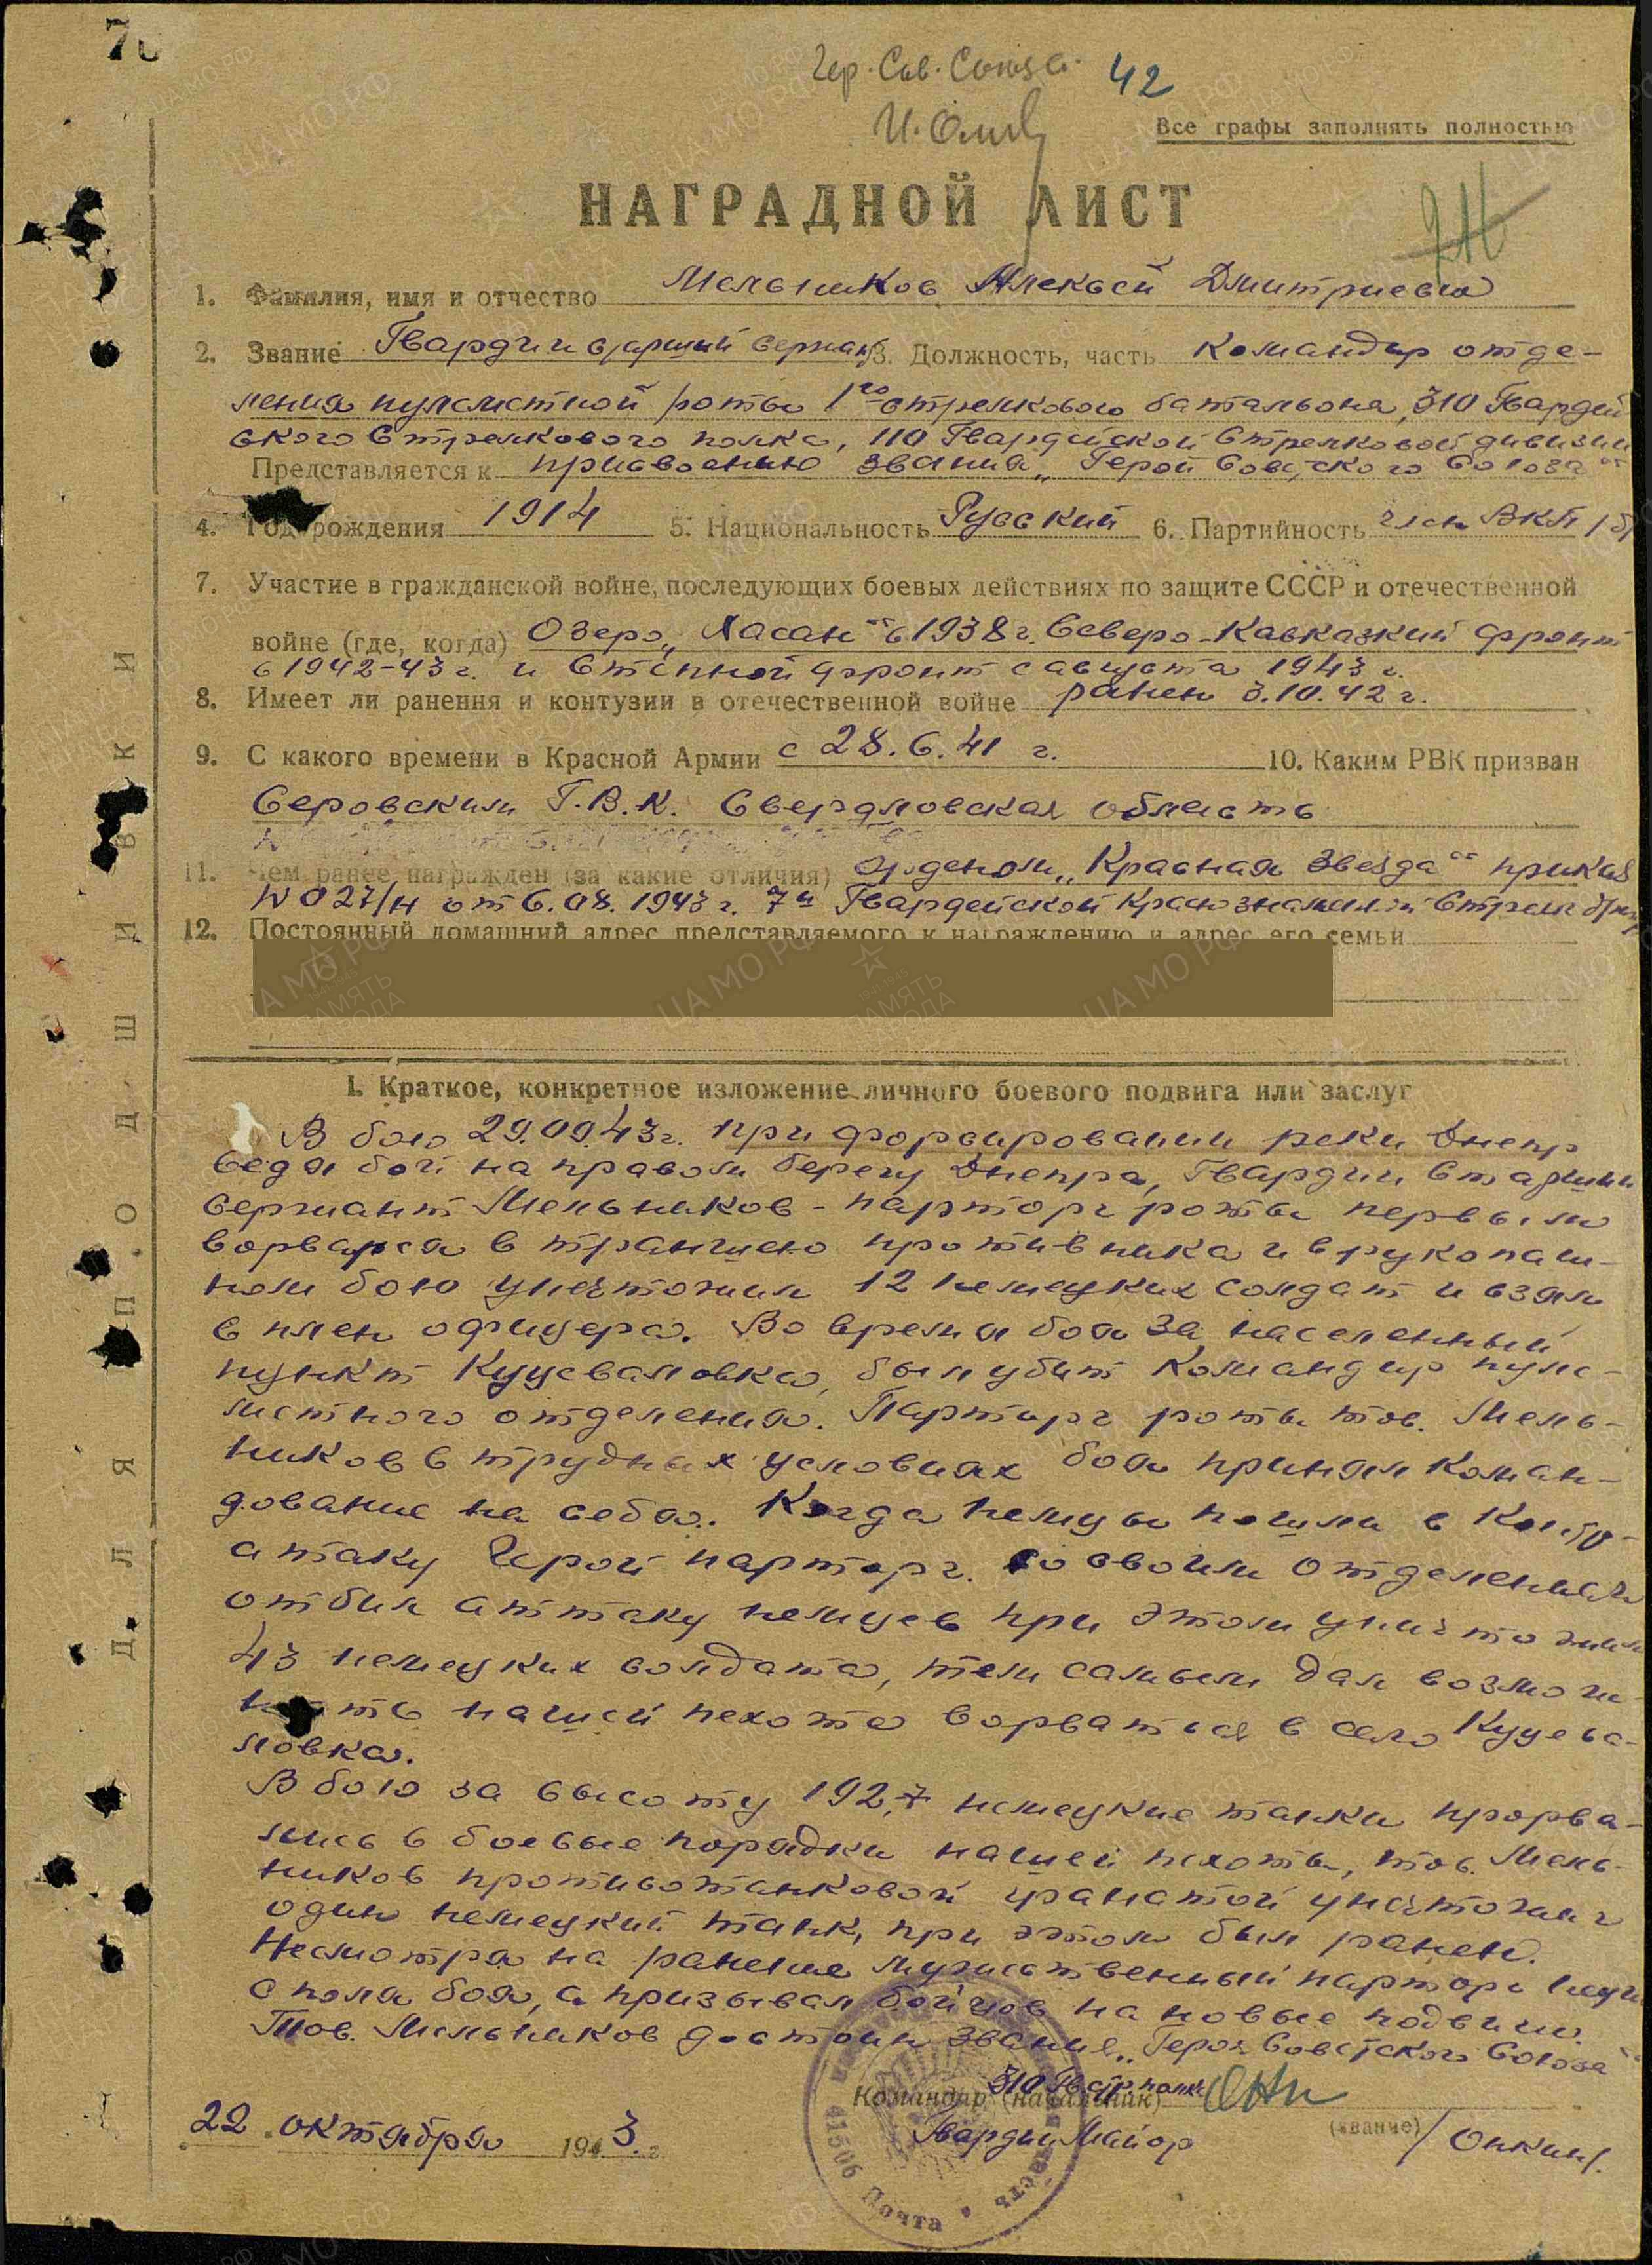 Гер. Сов. Союза. 42
Все графы заполнять полностью
НАГРАДНОЙ ЛИСТ
1. Фамилия, имя и отчество Мельников Алексей Дмитриевич
2. Звание Гвардии старший сержант 3. Должность, часть Командир отде-
ления пулеметной роты 1го стрелкового батальона, 310 Гвардей
ского Стрелкового полка, 110 Гвардейской Стрелковой дивизии
Представляется к присвоению звания „Герой Советского Союза“
4. Год рождения 1914 5. Национальность Русский 6. Партийность член ВКП/б/
7. Участие в гражданской войне, последующих боевых действиях по защите СССР и отечественной
войне (где, когда) Озеро „Хасан“ в 1938 г. Северо-Кавказкий фронт
в 1942-43 г. и Степной фронт с августа 1943 г.
8. Имеет ли ранения и контузии в отечественной войне ранен 3.10.42 г.
9. С какого времени в Красной Армии с 28.6.41 г. 10. Каким РВК призван
Серовским Г.В.К. Свердловская область
11. Чем ранее награжден (за какие отличия) орденом „Красная Звезда“ приказ
N 027/н от 6.08.1943 г. 7й Гвардейской Краснознаменной Стрелк
12. Постоянный домашний адрес представляемого к награждению и адрес его семьи
I. Краткое, конкретное изложение личного боевого подвига или заслуг
В бою 29.09.43 г. при форсировании реки Днепр
ведя бой на правом берегу Днепра, Гвардии Старший
сержант Мельников - парторг роты первым
ворвался в траншею противника и в рукопаш-
ном бою уничтожил 12 немецких солдат и взял
в плен офицера. Во время боя за населенный
пункт Куцеваловка, был убит Командир пуле-
метного отделения. Парторг роты тов. Мель-
ников в трудных условиях боя принял коман-
дование на себя. Когда немцы пошли в контр-
атаку Герой парторг. со своим отделением
отбил аттаку немцев при этом уничтожил
43 немецких солдата, тем самым дал возмож
ность нашей пехоте ворваться в село Куцева-
ловка.
В бою за высоту 192,7 немецкие танки прорва-
лись в боевые порядки нашей пехоты, тов. Мель-
ников противотанковой гранатой уничтожил
один немецкий танк, при этом был ранен.
Несмотря на ранение мужественный парторг
с поля боя, а призывал бойцов на новые подвиги.
Тов. Мельников достоин звания „Героя Советского Союза“
310 Гв. стр. полка
Командир (начальник)
Гвардии Майор (звание) /Онкин/.
22 октября 1943 г.
41506 Почта
часть
ДЛЯ ПОДШИВКИ
ЦА МО РФ
ПАМЯТЬ НАРОДА